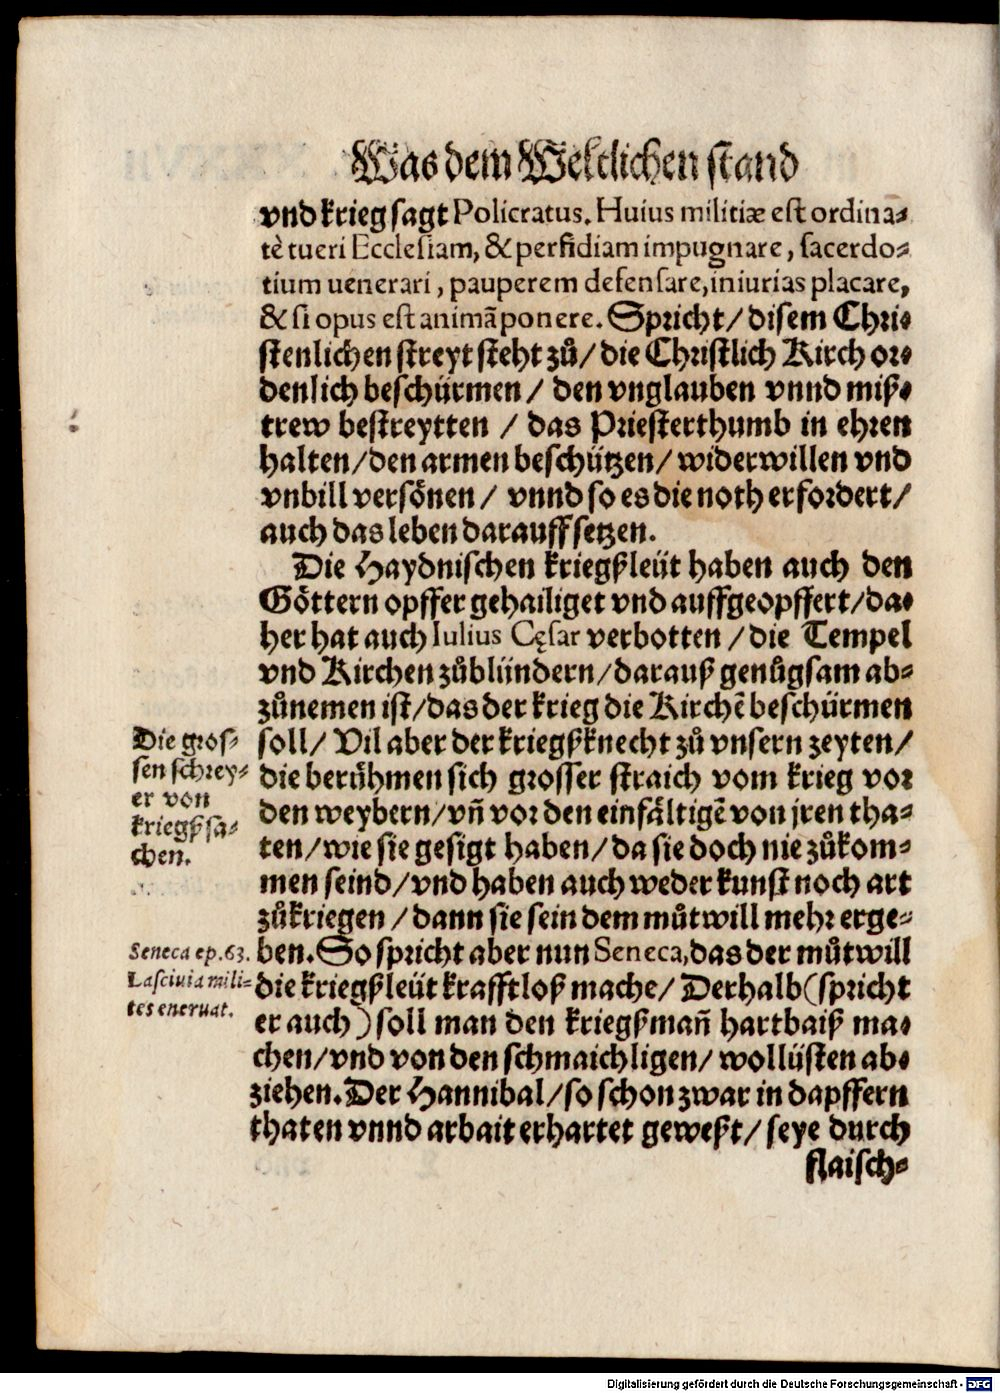 Was dem Weltlichen stand
vnd krieg sagt Policratus. Huius militiæ est ordina-
tè tueri Ecclesiam, & perfidiam impugnare, sacerdo-
tium uenerari, pauperem defensare, iniurias placare,
& si opus est animã ponere. Spricht / disem Chri-
stenlichen streyt steht zů / die Christlich Kirch or-
denlich beschürmen / den vnglauben vnnd miß-
trew bestreytten / das Priesterthumb in ehren
halten / den armen beschützen / widerwillen vnd
vnbill versönen / vnnd so es die noth erfordert /
auch das leben darauff setzen.
Die Haydnischen kriegßleüt haben auch den
Göttern opffer gehailiget vnd auffgeopffert / da-
her hat auch Iulius Cęsar verbotten / die Tempel
vnd Kirchen zůblündern / darauß genůgsam ab-
zůnemen ist / das der krieg die Kirchẽ beschürmen
soll / Vil aber der kriegßknecht zů vnsern zeyten /
die berühmen sich grosser straich vom krieg vor
den weybern / vñ vor den einfältigẽ von jren tha-
ten / wie sie gesigt haben / da sie doch nie zůkom-
men seind / vnd haben auch weder kunst noch art
zůkriegen / dann sie sein dem můtwill mehr erge-
ben. So spricht aber nun Seneca, das der můtwill
die kriegßleüt krafftloß mache / Derhalb (spricht
er auch) soll man den kriegßmañ hartbaiß ma-
chen / vnd von den schmaichligen / wollüsten ab-
ziehen. Der Hannibal / so schon zwar in dapffern
thaten vnnd arbait erhartet geweßt / seye durch
flaisch-
Die gros-
sen schrey-
er von
kriegßsa-
chen.
Seneca ep. 63.
Lasciuia mili-
tes eneruat.
Digitalisierung gefördert durch die Deutsche Forschungsgemeinschaft - DFG